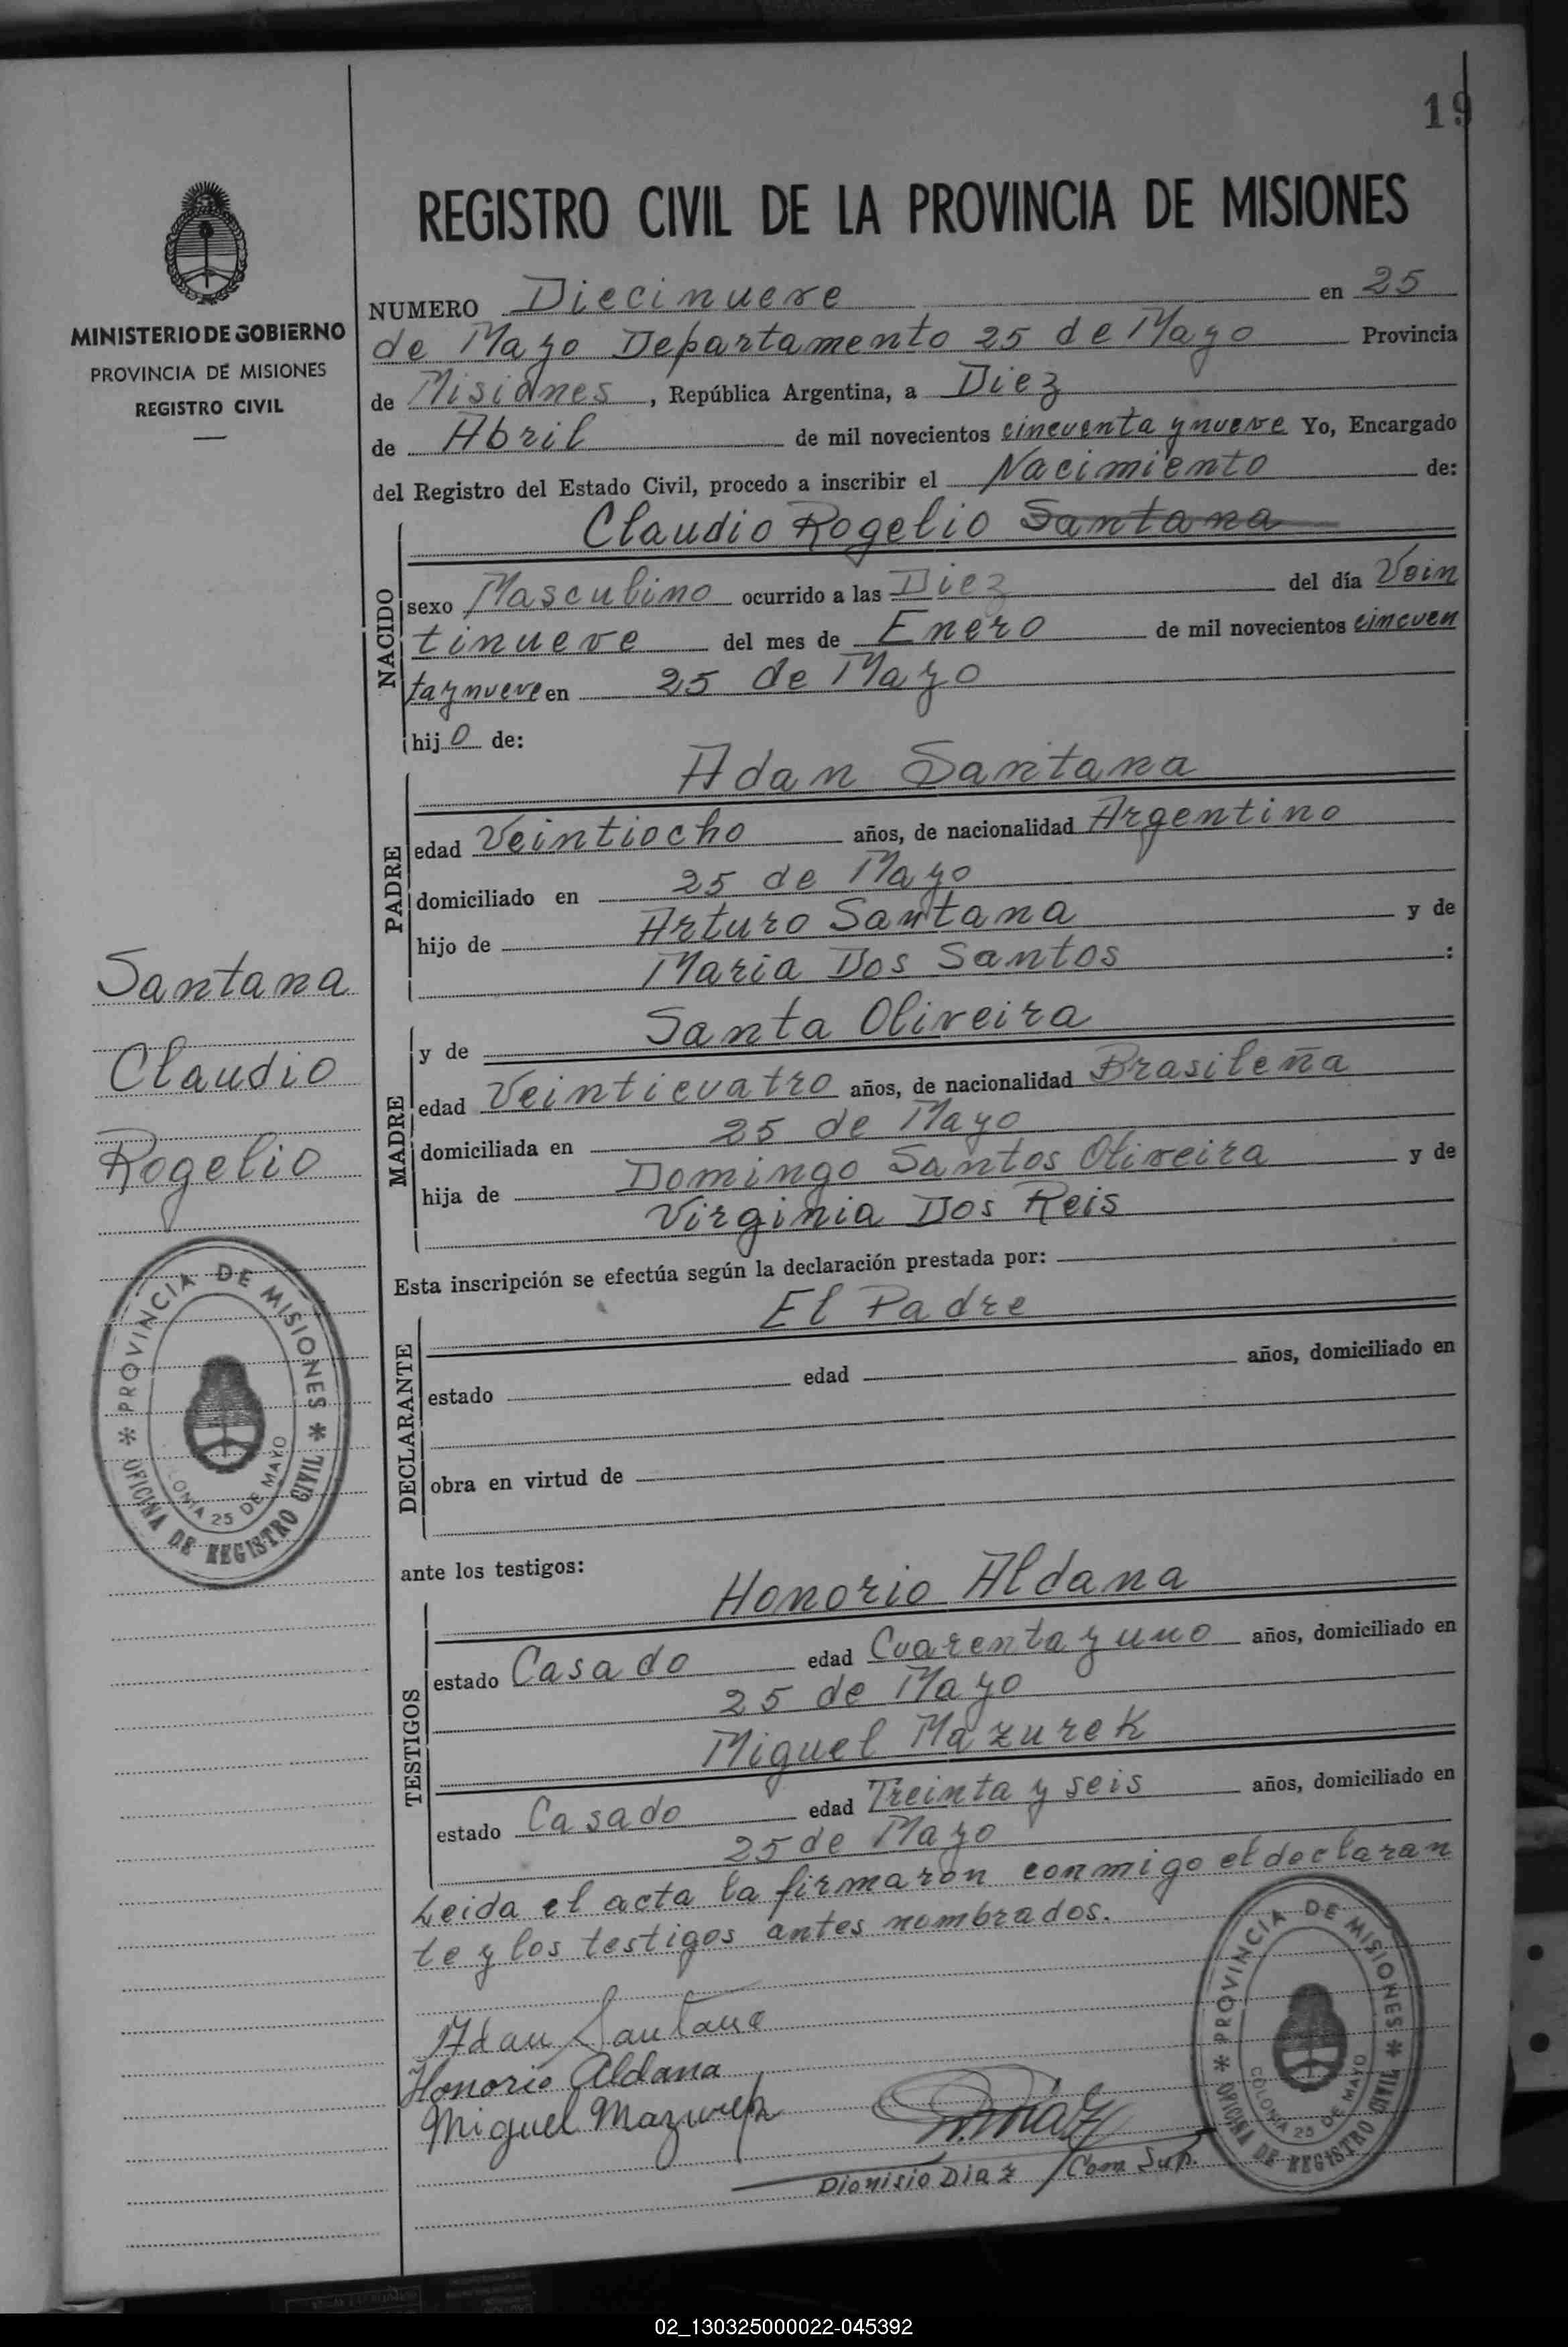 19
MINISTERIO DE GOBIERNO
PROVINCIA DE MISIONES
REGISTRO CIVIL
Santana
Claudio
Rogelio
PROVINCIA DE MISIONES
OFICINA DE REGISTRO CIVIL
LONIA 25 DE MAYO
REGISTRO CIVIL DE LA PROVINCIA DE MISIONES
NUMERO Diecinueve en 25
de Mayo Departamento 25 de Mayo Provincia
de Misiones, República Argentina, a Diez
de Abril de mil novecientos cincuenta y nueve Yo, Encargado
del Registro del Estado Civil, procedo a inscribir el Nacimiento de:
NACIDO
Claudio Rogelio Santana
sexo Masculino ocurrido a las Diez del día Vein
tinueve del mes de Enero de mil novecientos cincuen
ta y nueve en 25 de Mayo
hijo de:
PADRE
Adan Santana
edad Veintiocho años, de nacionalidad Argentino
domiciliado en 25 de Mayo
hijo de Arturo Santana y de
Maria Dos Santos :
MADRE
y de Santa Oliveira
edad Veinticuatro años, de nacionalidad Brasileña
domiciliada en 25 de Mayo
hija de Domingo Santos Oliveira y de
Virginia Dos Reis
Esta inscripción se efectúa según la declaración prestada por:
DECLARANTE
El Padre
estado edad años, domiciliado en
obra en virtud de
ante los testigos:
TESTIGOS
Honorio Aldana
estado Casado edad Cuarenta y uno años, domiciliado en
25 de Mayo
Miguel Mazurek
estado Casado edad Treinta y seis años, domiciliado en
25 de Mayo
Leida el acta la firmaron conmigo el declaran
te y los testigos antes nombrados.
Adan Santana
Honorio Aldana
Miguel Mazurek
D. Diaz
Dionisio Diaz / Com Sup.
PROVINCIA DE MISIONES
OFICINA DE REGISTRO CIVIL
COLONIA 25 DE MAYO
02_130325000022-045392